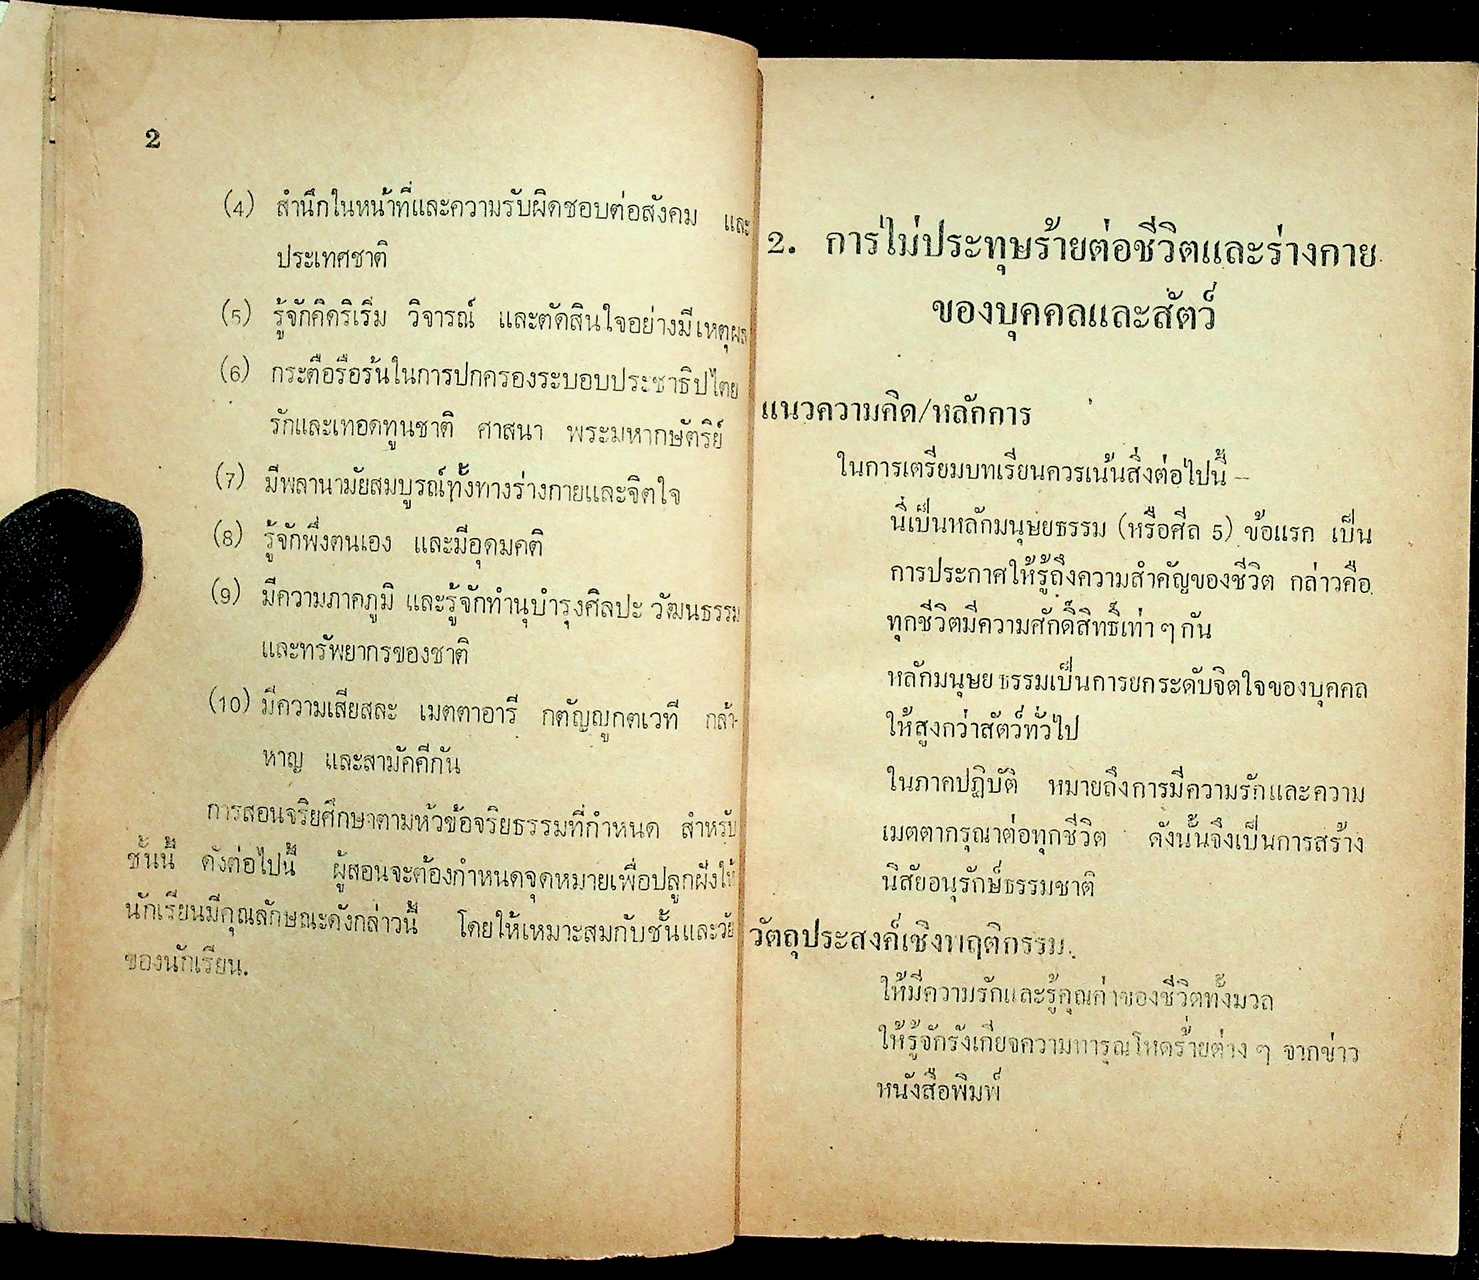 2
(4) สำนึกในหน้าที่และความรับผิดชอบต่อสังคม และ
ประเทศชาติ
(5) รู้จักคิดริเริ่ม วิจารณ์ และตัดสินใจอย่างมีเหตุผล
(6) กระตือรือร้นในการปกครองระบอบประชาธิปไตย
รักและเทอดทูนชาติ ศาสนา พระมหากษัตริย์
(7) มีพลานามัยสมบูรณ์ทั้งทางร่างกายและจิตใจ
(8) รู้จักพึ่งตนเอง และมีอุดมคติ
(9) มีความภาคภูมิ และรู้จักทำนุบำรุงศิลปะ วัฒนธรรม
และทรัพยากรของชาติ
(10) มีความเสียสละ เมตตาอารี กตัญญูกตเวที กล้า-
หาญ และสามัคคีกัน
การสอนจริยศึกษาตามหัวข้อจริยธรรมที่กำหนด สำหรับ
ชั้นนี้ ดังต่อไปนี้ ผู้สอนจะต้องกำหนดจุดหมายเพื่อปลูกฝังให้
นักเรียนมีคุณลักษณะดังกล่าวนี้ โดยให้เหมาะสมกับชั้นและวัย
ของนักเรียน.
2. การไม่ประทุษร้ายต่อชีวิตและร่างกาย
ของบุคคลและสัตว์
แนวความคิด/หลักการ
ในการเตรียมบทเรียนควรเน้นสิ่งต่อไปนี้ –
นี่เป็นหลักมนุษยธรรม (หรือศีล 5) ข้อแรก เป็น
การประกาศให้รู้ถึงความสำคัญของชีวิต กล่าวคือ
ทุกชีวิตมีความศักดิ์สิทธิ์เท่า ๆ กัน
หลักมนุษยธรรมเป็นการยกระดับจิตใจของบุคคล
ให้สูงกว่าสัตว์ทั่วไป
ในภาคปฏิบัติ หมายถึงการมีความรักและความ
เมตตากรุณาต่อทุกชีวิต ดังนั้นจึงเป็นการสร้าง
นิสัยอนุรักษ์ธรรมชาติ
วัตถุประสงค์เชิงพฤติกรรม.
ให้มีความรักและรู้คุณค่าของชีวิตทั้งมวล
ให้รู้จักรังเกียจความทารุณโหดร้ายต่าง ๆ จากข่าว
หนังสือพิมพ์